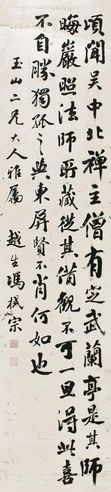 頃聞吳中北禪主僧有定武蘭亭是其師
晦巖照法師所藏從其借觀不可一旦得此喜
不自勝獨孤之與東屏賢不肖何如也
玉山二兄大人雅屬
趙生馮棫宗